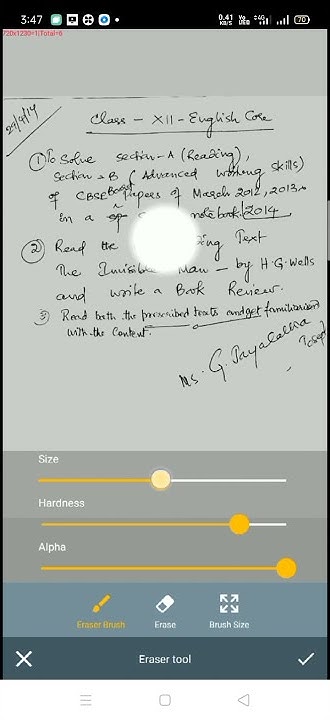 3:47
0.41 KB/S
Vo LTE
4G
70
720x1230=1|Total=6
Class - XII - English Core
① To Solve Section-A (Reading),
Section-B (Advanced Writing Skills)
of CBSE Board Papers of March 2012, 2013 &
in a notebook. 2014
② Read the Text
The Invisible Man - by H.G. Wells
and write a Book Review.
3) Read both the prescribed texts and get familiarised
with the content.
Ms. G.
Size
Hardness
Alpha
Eraser Brush
Erase
Brush Size
Eraser tool